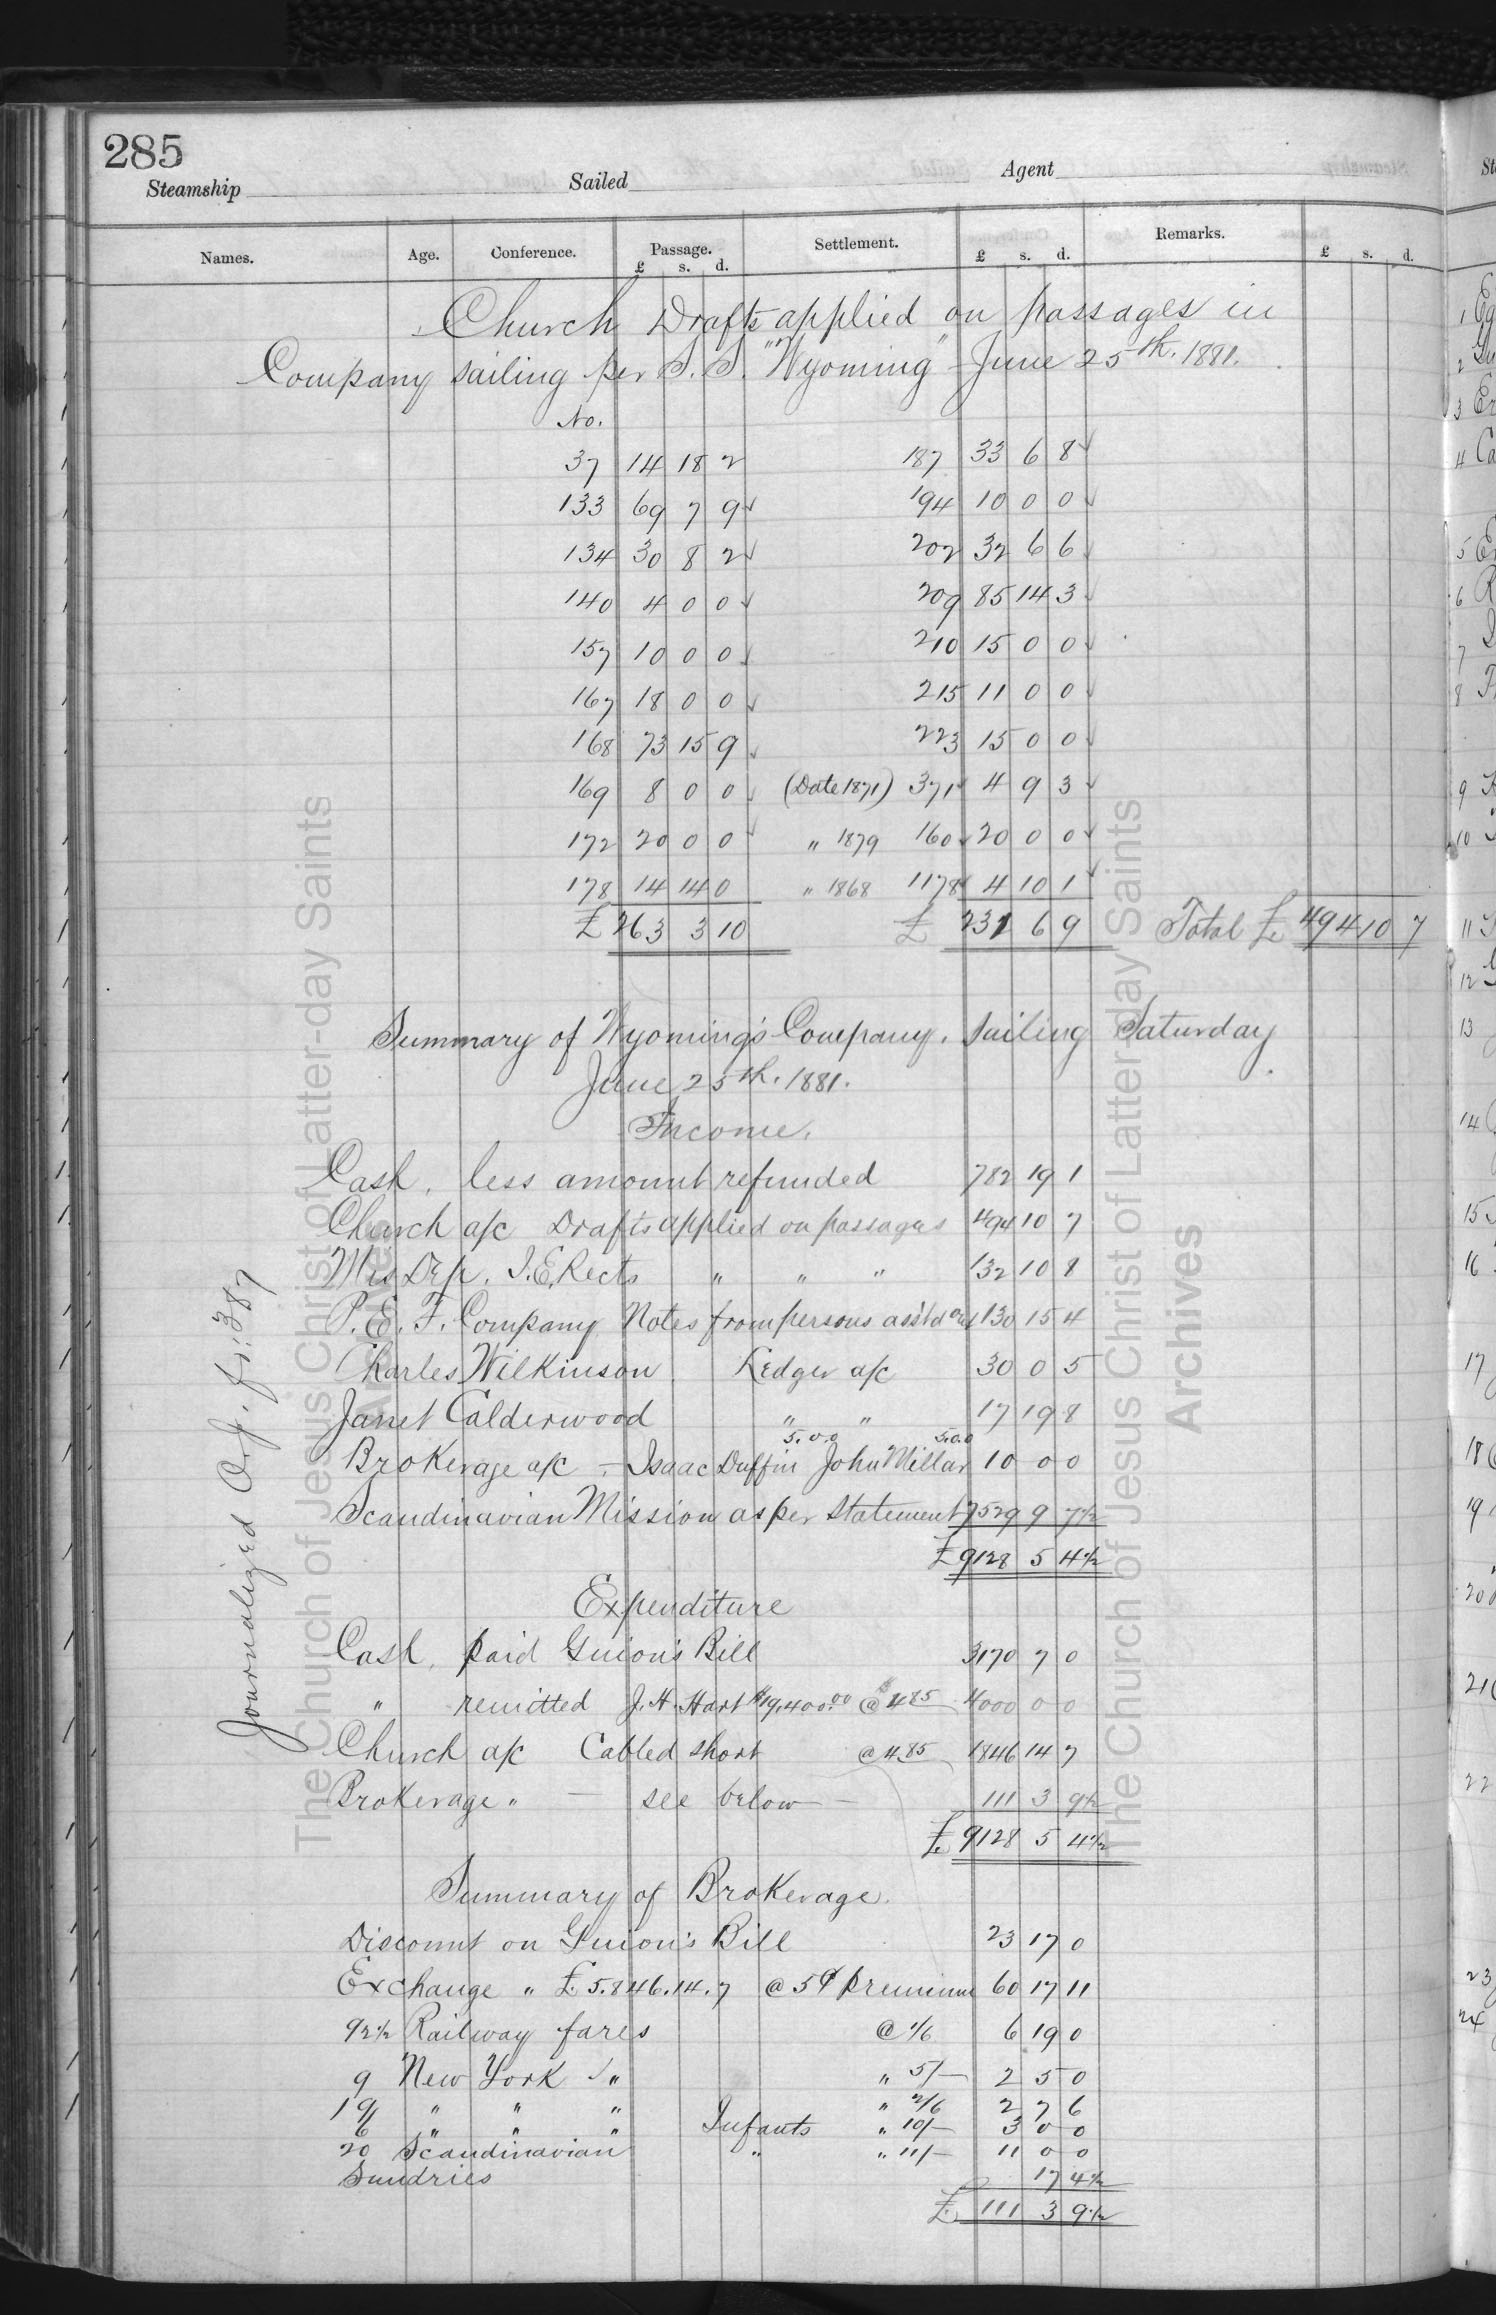 285
Steamship Sailed Agent
Names. Age. Conference. Passage. Settlement. Remarks.
£ s. d. £ s. d. £ s. d.
Church Drafts applied on passages in
Company sailing per S.S. "Wyoming" June 25th. 1881.
No.
37 14 18 2 187 33 6 8
133 69 7 9 194 10 0 0
134 30 8 2 202 32 6 6
140 4 0 0 209 85 14 3
157 10 0 0 210 15 0 0
167 18 0 0 215 11 0 0
168 73 15 9 223 15 0 0
169 8 0 0 (Date 1871) 371 4 9 3
172 20 0 0 " 1879 160 20 0 0
178 14 14 0 " 1868 1178 4 10 1
£ 263 3 10 £ 231 6 9 Total £ 494 10 7
Summary of Wyoming's Company. sailing Saturday
June 25th. 1881.
Income.
Cash, less amount refunded 782 19 1
Church a/c Drafts applied on passages 494 10 7
Mis Dep. I.E. Rects " " " 132 10 8
P.E.F. Company Notes from persons ass'td out 130 15 4
Charles Wilkinson Ledger a/c 30 0 5
Janet Calderwood " " 17 19 8
5.0.0 5.0.0
Brokerage a/c - Isaac Duffin John Millar 10 0 0
Scandinavian Mission as per statement 7529 9 7½
£ 9128 5 4½
Expenditure
Cash, paid Guion's Bill 3170 7 0
" remitted J.H. Hart $19,400.00 @ $4.85 4000 0 0
Church a/c Cabled short @ 4.85 1846 14 7
Brokerage " — see below — 111 3 9½
£ 9128 5 4½
Journalized O.J. fo. 387
Summary of Brokerage.
Discount on Guion's Bill 23 17 0
Exchange " £5.846.14.7 @ 5¢ premium 60 17 11
92½ Railway fares @ 1/6 6 19 0
9 New York " " 5/- 2 5 0
19 " " " " 2/6 2 7 6
6 " " " Infants " 10/- 3 0 0
20 Scandinavian " " " 11/- 11 0 0
Sundries 17 4½
£ 111 3 9½
The Church of Jesus Christ of Latter-day Saints
Archives
The Church of Jesus Christ of Latter-day Saints
Archives